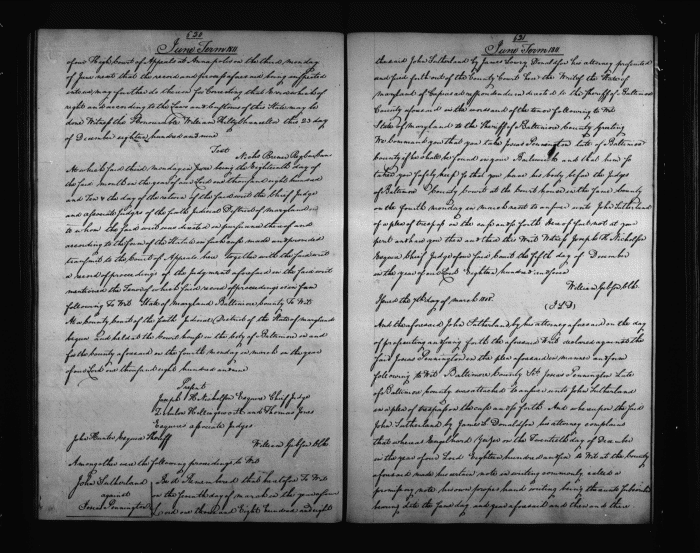 630
June Term 1811
of our High Court of Appeals at Annapolis on the third monday
of June next that the record and process aforesaid being inspected
we may further do therein for Correcting that Error what of
right and according to the Law and Customs of this State may be
done Witness the Honourable William Kilty Chancellor this 23 day
of December eighteen hundred and nine
Test
Nichs Brewer Reg Cur Can
At which said third monday in June being the Eighteenth day of
the said month in the year of our Lord one thousand eight hundred
and Ten the day of the return of the said writ the Chief Judge
and associate Judges of the sixth Judicial District of Maryland
to whom the said writ was directed in pursuance thereof and
according to the form of the Statute in such case made and provided
transmit to the Court of Appeals here together with the said writ
a record of proceedings of the Judgment aforesaid in the said writ
mentioned the Tenor of which said record of proceedings is in form
following To Wit State of Maryland Baltimore County To Wit
At a County Court of the sixth Judicial District of the State of Maryland
begun and held at the Court house in the City of Baltimore in and
for the County aforesaid on the fourth monday in March in the year
of our Lord one thousand eight hundred and nine
Present
Joseph H Nicholson Esquire Chief Judge
Zebulon Hollingsworth and Thomas Jones
Esquires associate Judges
John Hunter Esquire Sheriff
William Gibson Clk
Amongst other were the following proceedings to Wit
John Sutherland
against
Josias Pennington
Be it Remembered that heretofore To Wit
on the seventh day of march in the year of our
Lord one thousand Eight hundred and eight
631
June Term 1811
the said John Sutherland by James Lowry Donaldson his attorney prosecuted
and sued forth out of the County Court here the Writ of the State of
Maryland of Capias ad respondendum directed to the Sheriff of Baltimore
County aforesaid in the words and of the tenor following to Wit
State of Maryland to the Sheriff of Baltimore County Greeting
We command you that you take Josias Pennington late of Baltimore
County if he shall be found in your Bailiwick and that him so
taken you safely keep so that you have his body before the Judges
of Baltimore County Court at the Court house in the same County
on the fourth monday in march next to answer unto John Sutherland
of a plea of trespass on the case and so forth Hereof fail not at your
peril and have you then and there this Writ Witness Joseph H Nicholson
Esquire Chief Judge of our said Court the fifth day of December
in the year of our Lord Eighteen hundred and seven
William Gibson Clk
Issued the 7th day of march 1808
And the aforesaid John Sutherland by his attorney aforesaid on the day
of prosecuting and suing forth the aforesaid Writ declared against the
said Josias Pennington in the plea aforesaid in manner and form
following to Wit Baltimore County Sct Josias Pennington late
of Baltimore County was attached to answer unto John Sutherland
in a plea of trespass on the case and so forth And whereupon the said
John Sutherland by James L Donaldson his attorney complains
that whereas on the Twentieth day of December
in the year of our Lord Eighteen hundred and six To Wit at the County
aforesaid made his certain note in writing commonly called a
promissory note his own proper hand writing being thereunto subscribed
bearing date the same day and year aforesaid and then and there